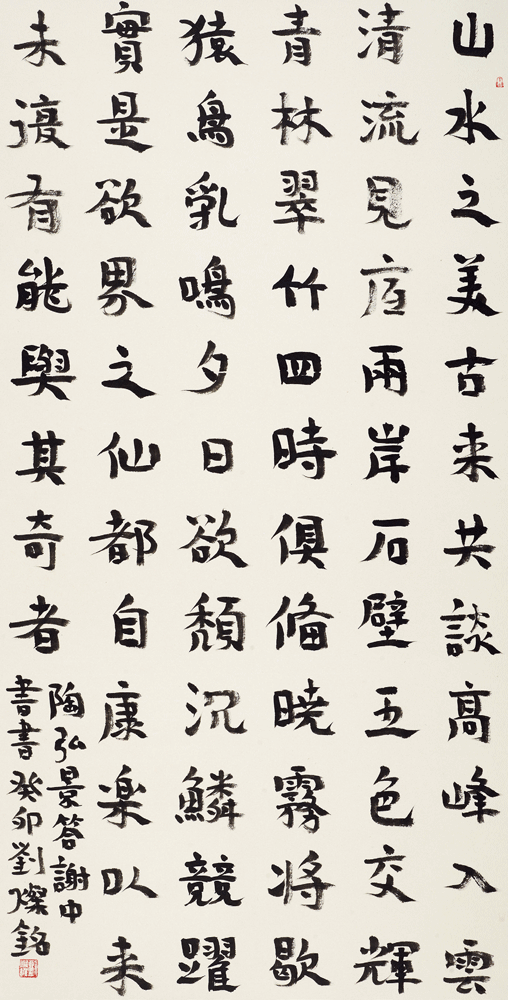 山水之美古来共談高峰入雲
清流見底兩岸石壁五色交輝
青林翠竹四時俱俻暁霧将歇
猿鳥乳鳴夕日欲頽沉鱗競躍
實是欲界之仙都自康楽以来
未復有能與其奇者
陶弘景答謝中
書書癸卯劉燦銘